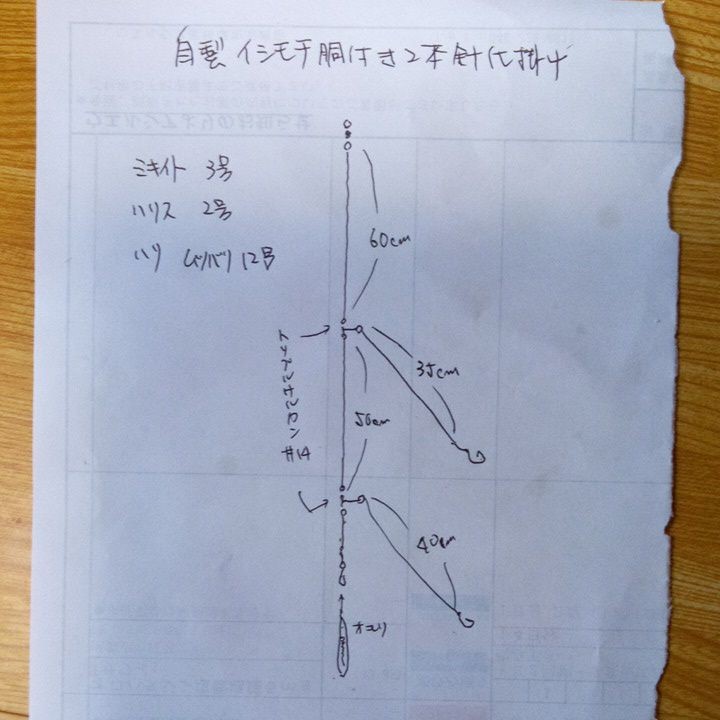 自製 イシモチ胴付き2本針仕掛け
ミキイト 3号
ハリス 2号
ハリ ムツバリ 12号
60cm
トリプルサルカン
#14
35cm
50cm
40cm
オモリ